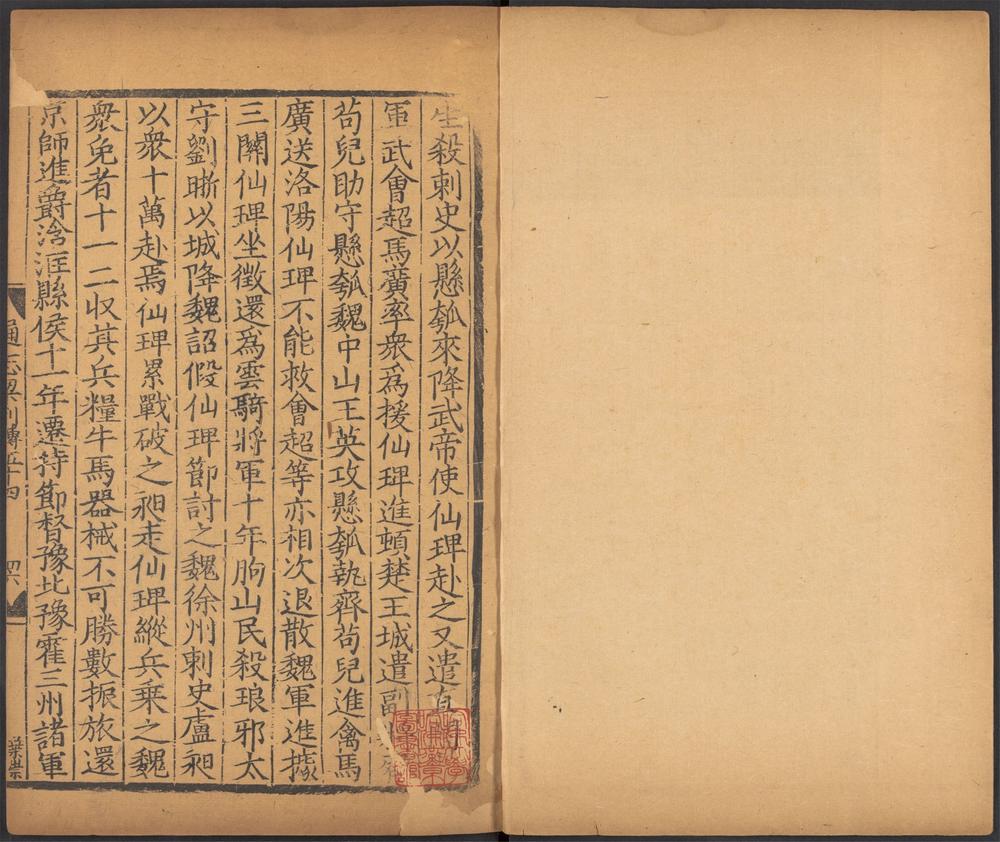 生殺刺史以懸瓠來降武帝使仙琕赴之又遣直
軍武會超馬廣率衆爲援仙琕進頓楚王城遣副
苟兒助守懸瓠魏中山王英攻懸瓠執齊苟兒進禽馬
廣送洛陽仙琕不能救會超等亦相次退散魏軍進據
三關仙琕坐徵還爲雲騎將軍十年朐山民殺琅邪太
守劉晣以城降魏詔假仙琕節討之魏徐州刺史盧昶
以衆十萬赴焉仙琕累戰破之昶走仙琕縱兵乗之魏
衆免者十一二収其兵糧牛馬器械不可勝數振旅還
京師進爵浛洭縣侯十一年遷持節督豫北豫霍三州諸軍
通志列傳五十四 四六
葉崇